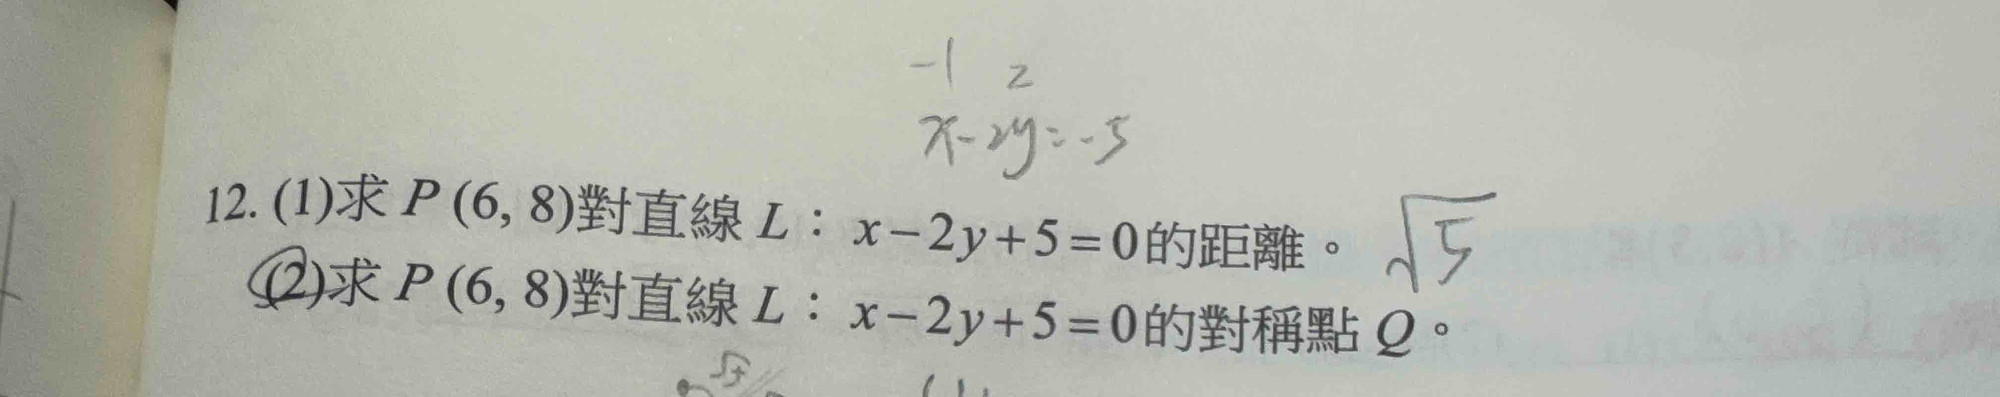 -1 2
x-2y=-5
12. (1)求 P (6, 8)對直線 L：x－2y＋5＝0的距離。 √5
(2)求 P (6, 8)對直線 L：x－2y＋5＝0的對稱點 Q。
√5